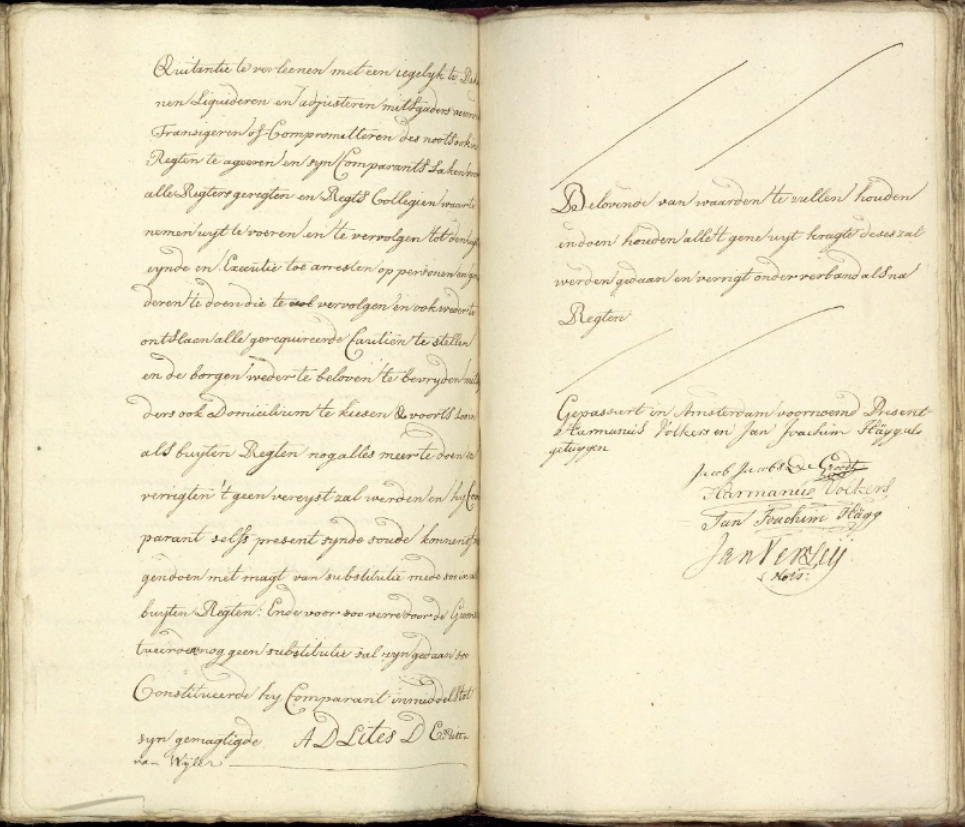 Quitantie te verleenen met een iegelyk te
nen Liquideren en adjusteren mitsgaders
Transigeren of Compromitteren des noots ook
Regten te ageeren en syn Comparants saken voor
alle Regters geregten en Regts Collegien waar te
nemen uyt te voeren en te vervolgen tot den
eynde en Executie toe arresten op personen en
deren te doen die te vervolgen en ook weder te
ontslaen alle gerequireerde Cautien te stellen
en de borgen weder te beloven te bevryden
ders ook Domicilium te kiesen & voorts soo in
als buyten Regten nog alles meer te doen &
verrigten 't geen vereyst zal werden en hy Com
parant selfs present synde soude konnen
gen doen met magt van substitutie mede soo in als
buyten Regten: Ende voor soo verre door de
nog geen substitutie sal zyn gedaan soo
Constitueerde hy Comparant inmiddels tot
syn gemagtigde AD Lites D
van Wyler
Belovende van waarden te zullen houden
en doen houden alle 't gene uyt kragte deses zal
werden gedaan en verrigt onder verband als na
Regten
Gepasseert in Amsterdam voornoemd Present
Harmanus Volkers en Jan Joachim Hägg als
getuygen
Jacob Jacobs De Groot
Harmanus Volkers
Jan Joachim Hägg
Jan Verleij
Nots: